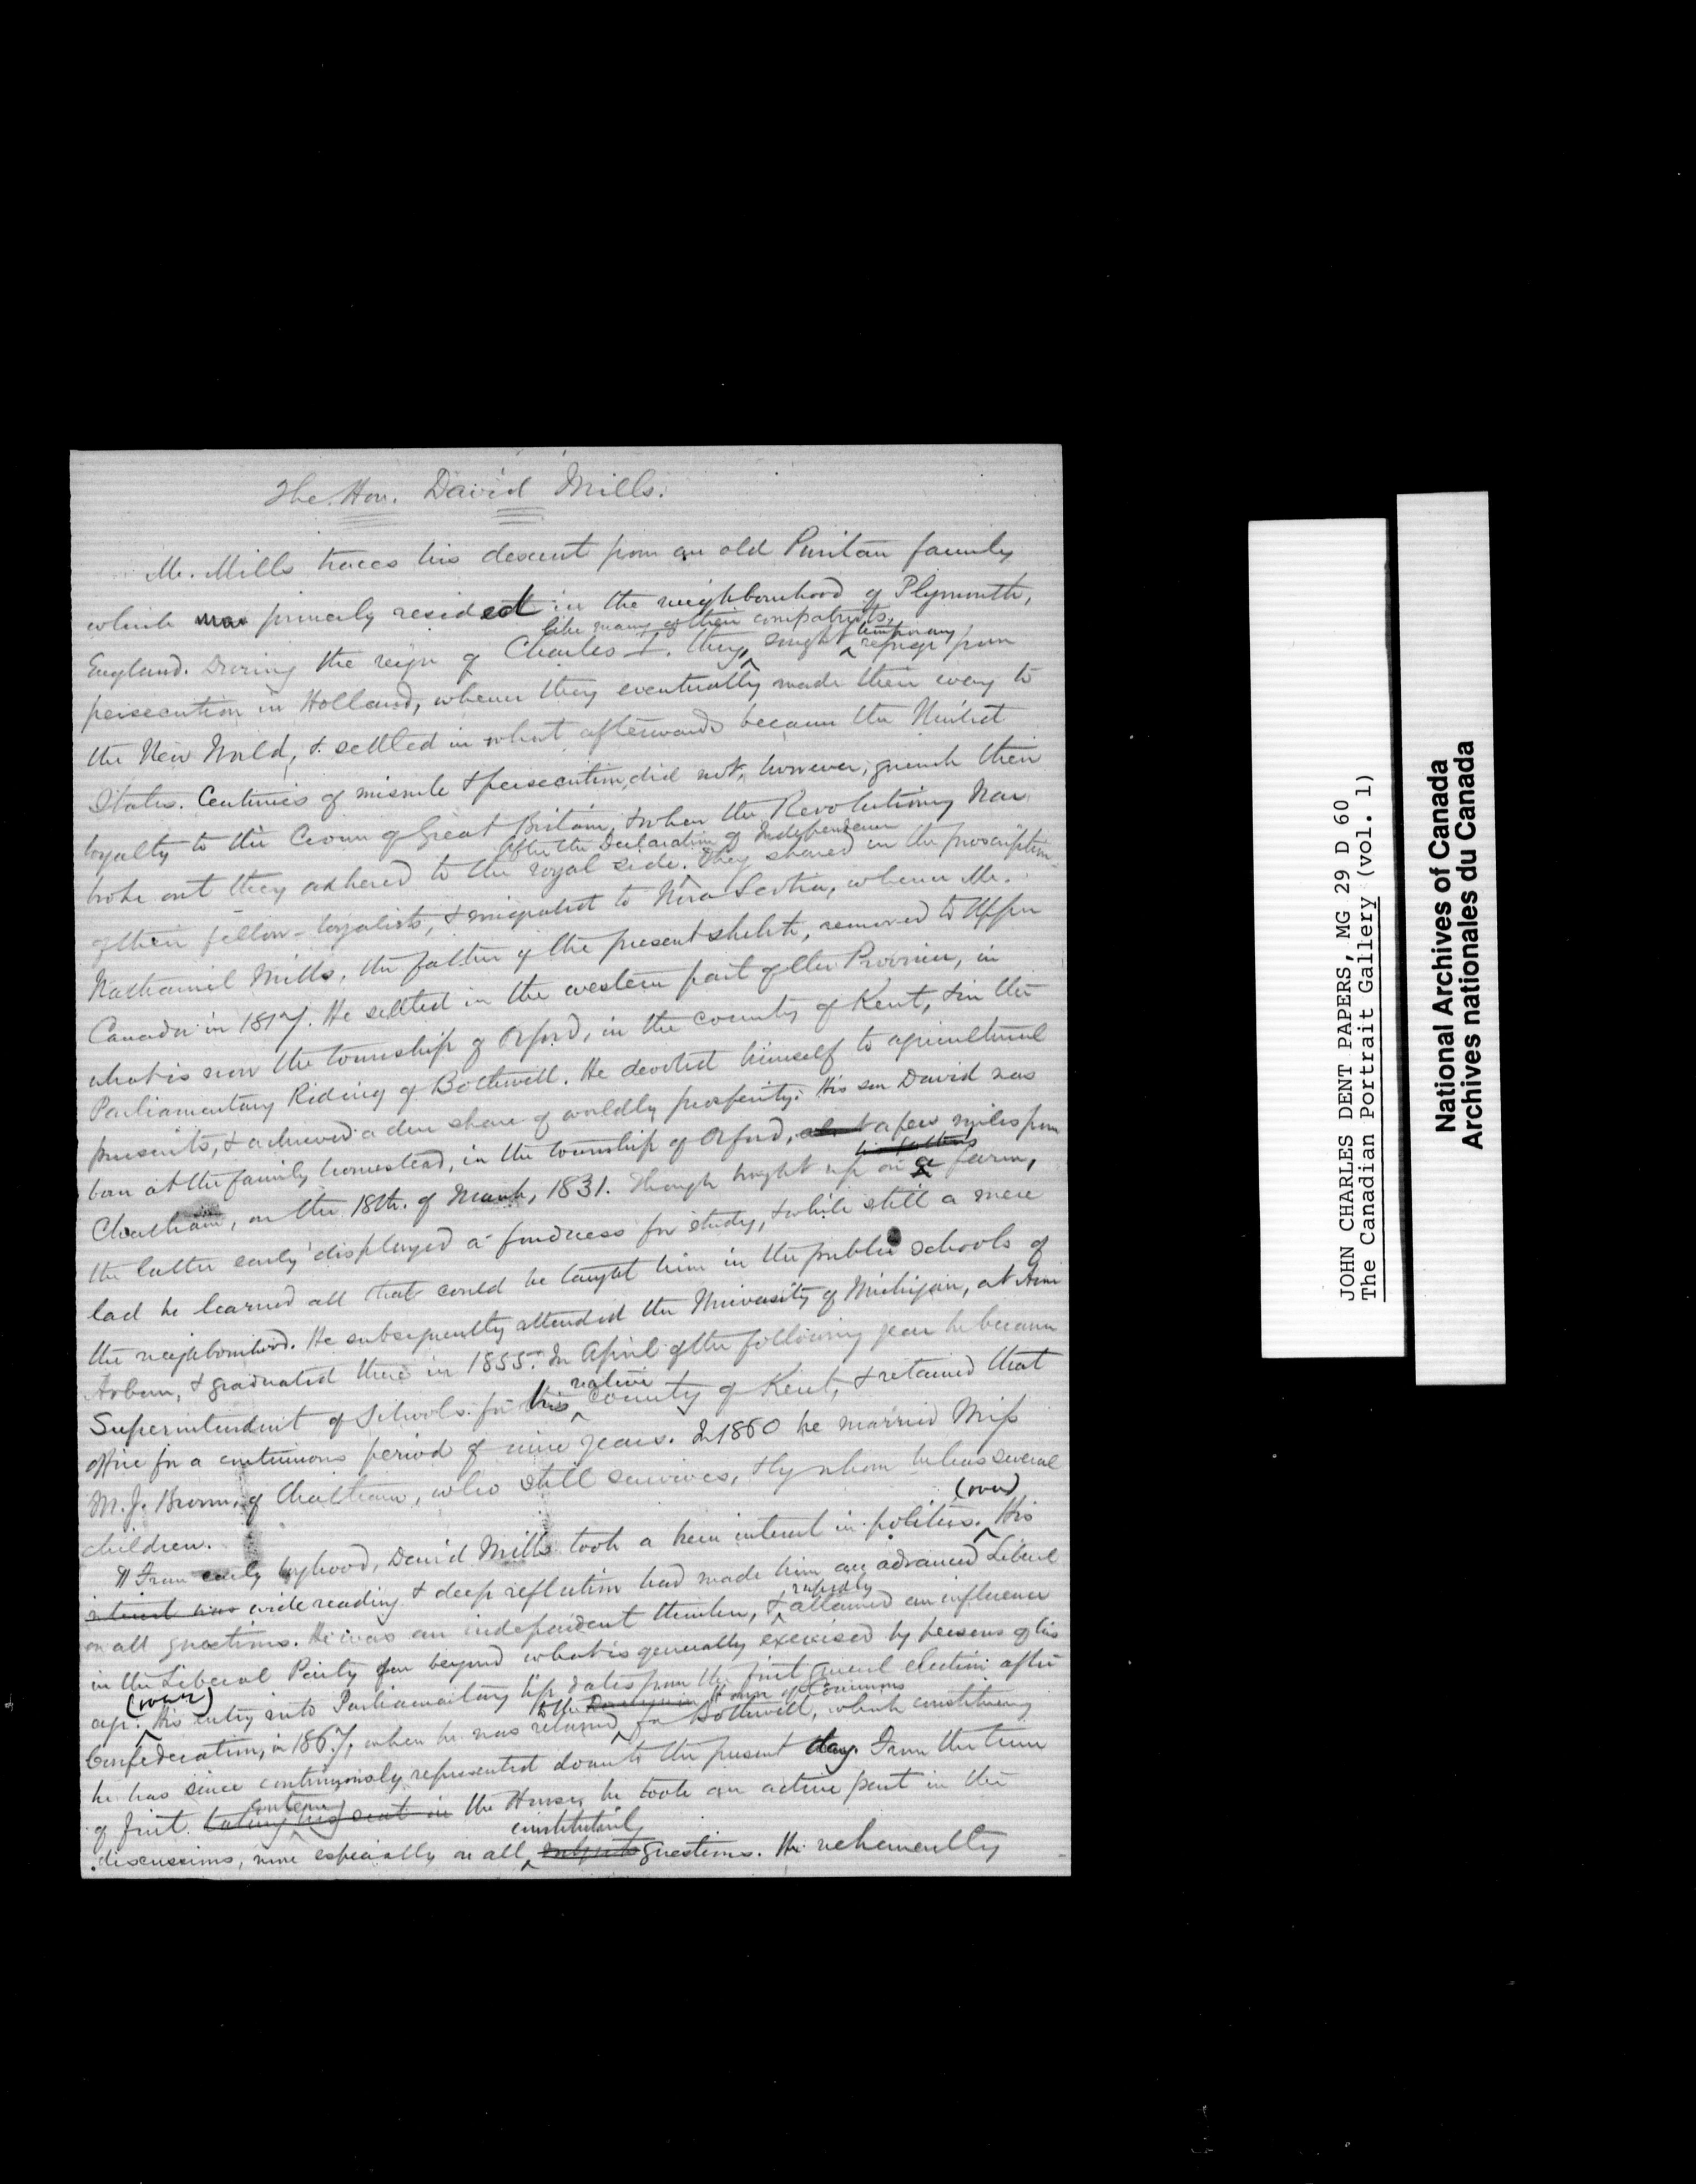 The Hon. David Mills.
Mr. Mills traces his descent from an old Puritan family
which was formerly resided in the neighbourhood of Plymouth,
like many of their compatriots, temporary
England. During the reign of Charles I. they, sought refuge from
persecution in Holland, whence they eventually made their way to
the New World, & settled in what afterwards became the United
States. Centuries of misrule & persecution, did not, however, quench their
loyalty to the Crown of Great Britain, & when the Revolutionary War
After the Declaration of Independence
broke out they adhered to the royal side. They shared in the proscription
of their fellow-loyalists, & migrated to Nova Scotia, whence Mr.
Nathaniel Mills, the father of the present sketch, removed to Upper
Canada in 1817. He settled in the western part of the Province, in
what is now the township of Orford, in the county of Kent, & in the
Parliamentary Riding of Bothwell. He devoted himself to agricultural
pursuits, & achieved a due share of worldly prosperity. His son David was
born at the family homestead, in the township of Orford, about a few miles from
his father's
Chatham, on the 18th. of March, 1831. Though brought up on a farm,
the latter early displayed a fondness for study, & while still a mere
lad he learned all that could be taught him in the public schools of
the neighbourhood. He subsequently attended the University of Michigan, at Ann
Arbour, & graduated there in 1855. In April of the following year he became
native
Superintendent of Schools for his county of Kent, & retained that
office for a continuous period of nine years. In 1860 he married Miss
M. J. Brown, of Chatham, who still survives, & by whom he has several
children.
(over)
¶ From early boyhood, David Mills took a keen interest in politics. His
interest was wide reading & deep reflection had made him an advanced Liberal
rapidly
on all questions. He was an independent thinker, & attained an influence
in the Liberal Party far beyond what is generally exercised by persons of his
(over)
age. His entry into Parliamentary life dates from the first general election after
to the Dominion House of Commons
Confederation, in 1867, when he was returned for Bothwell, which constituency
he has since continuously represented down to the present day. From the time
entering
of first taking his seat in the House, he took an active part in the
constitutional
discussions, more especially on all subjects questions. He vehemently
JOHN CHARLES DENT PAPERS, MG 29 D 60
The Canadian Portrait Gallery (vol. 1)
National Archives of Canada
Archives nationales du Canada